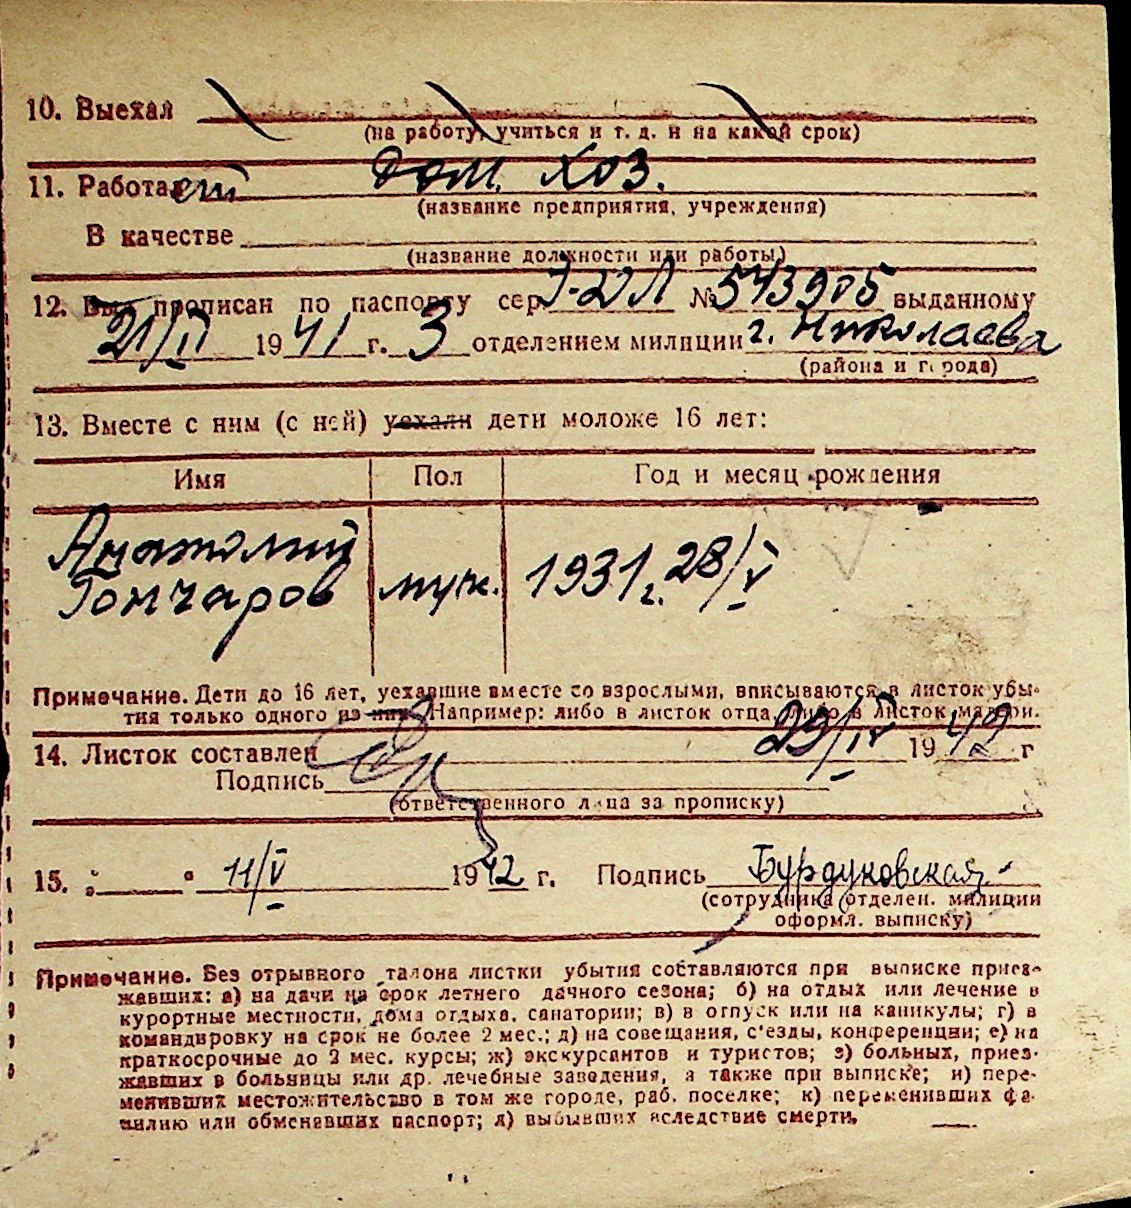 10. Выехал
(на работу, учиться и т. д. и на какой срок)
11. Работает дом. хоз.
(название предприятия, учреждения)
В качестве
(название должности или работы)
12. Вы прописан по паспорту сер. № 543905 выданному
21/II 1941 г. 3 отделением милиции г. Николаева
(района и города)
13. Вместе с ним (с ней) уехали дети моложе 16 лет:
Имя Пол Год и месяц рождения
Анатолий
Гончаров муж. 1931 г. 28/V
Примечание. Дети до 16 лет, уехавшие вместе со взрослыми, вписываются в листок убы-
тия только одного из них. Например: либо в листок отца, либо в листок матери.
14. Листок составлен 29/IV 1942 г
Подпись
(ответственного лица за прописку)
15. „ “ 11/V 1942 г. Подпись Бурдуковская
(сотрудника отделен. милиции
оформл. выписку)
Примечание. Без отрывного талона листки убытия составляются при выписке приез-
жавших: а) на дачи на срок летнего дачного сезона; б) на отдых или лечение в
курортные местности, дома отдыха, санатории; в) в отпуск или на каникулы; г) в
командировку на срок не более 2 мес.; д) на совещания, с'езды, конференции; е) на
краткосрочные до 2 мес. курсы; ж) экскурсантов и туристов; з) больных, приез-
жавших в больницы или др. лечебные заведения, а также при выписке; и) пере-
менивших местожительство в том же городе, раб. поселке; к) переменивших фа-
милию или обменявших паспорт; л) выбывших вследствие смерти.